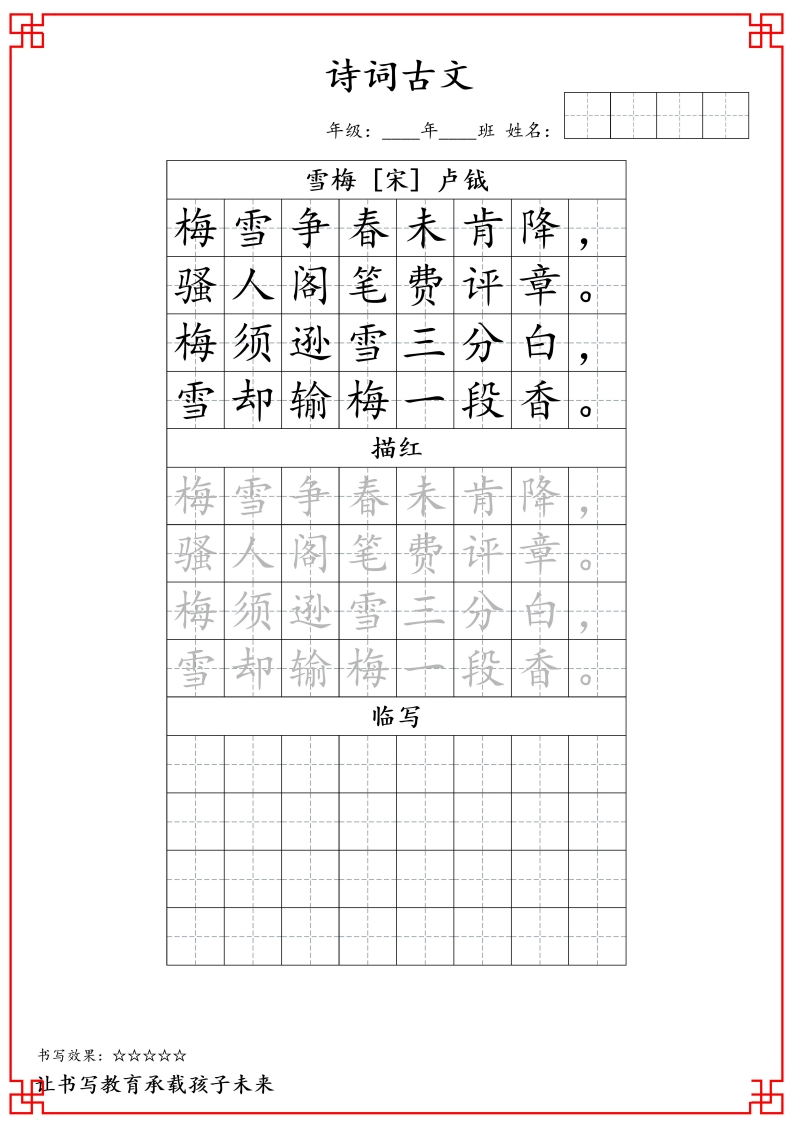 诗词古文
年级：____年____班 姓名：
雪梅［宋］卢钺
梅雪争春未肯降，
骚人阁笔费评章。
梅须逊雪三分白，
雪却输梅一段香。
描红
梅雪争春未肯降，
骚人阁笔费评章。
梅须逊雪三分白，
雪却输梅一段香。
临写
书写效果：☆☆☆☆☆
让书写教育承载孩子未来